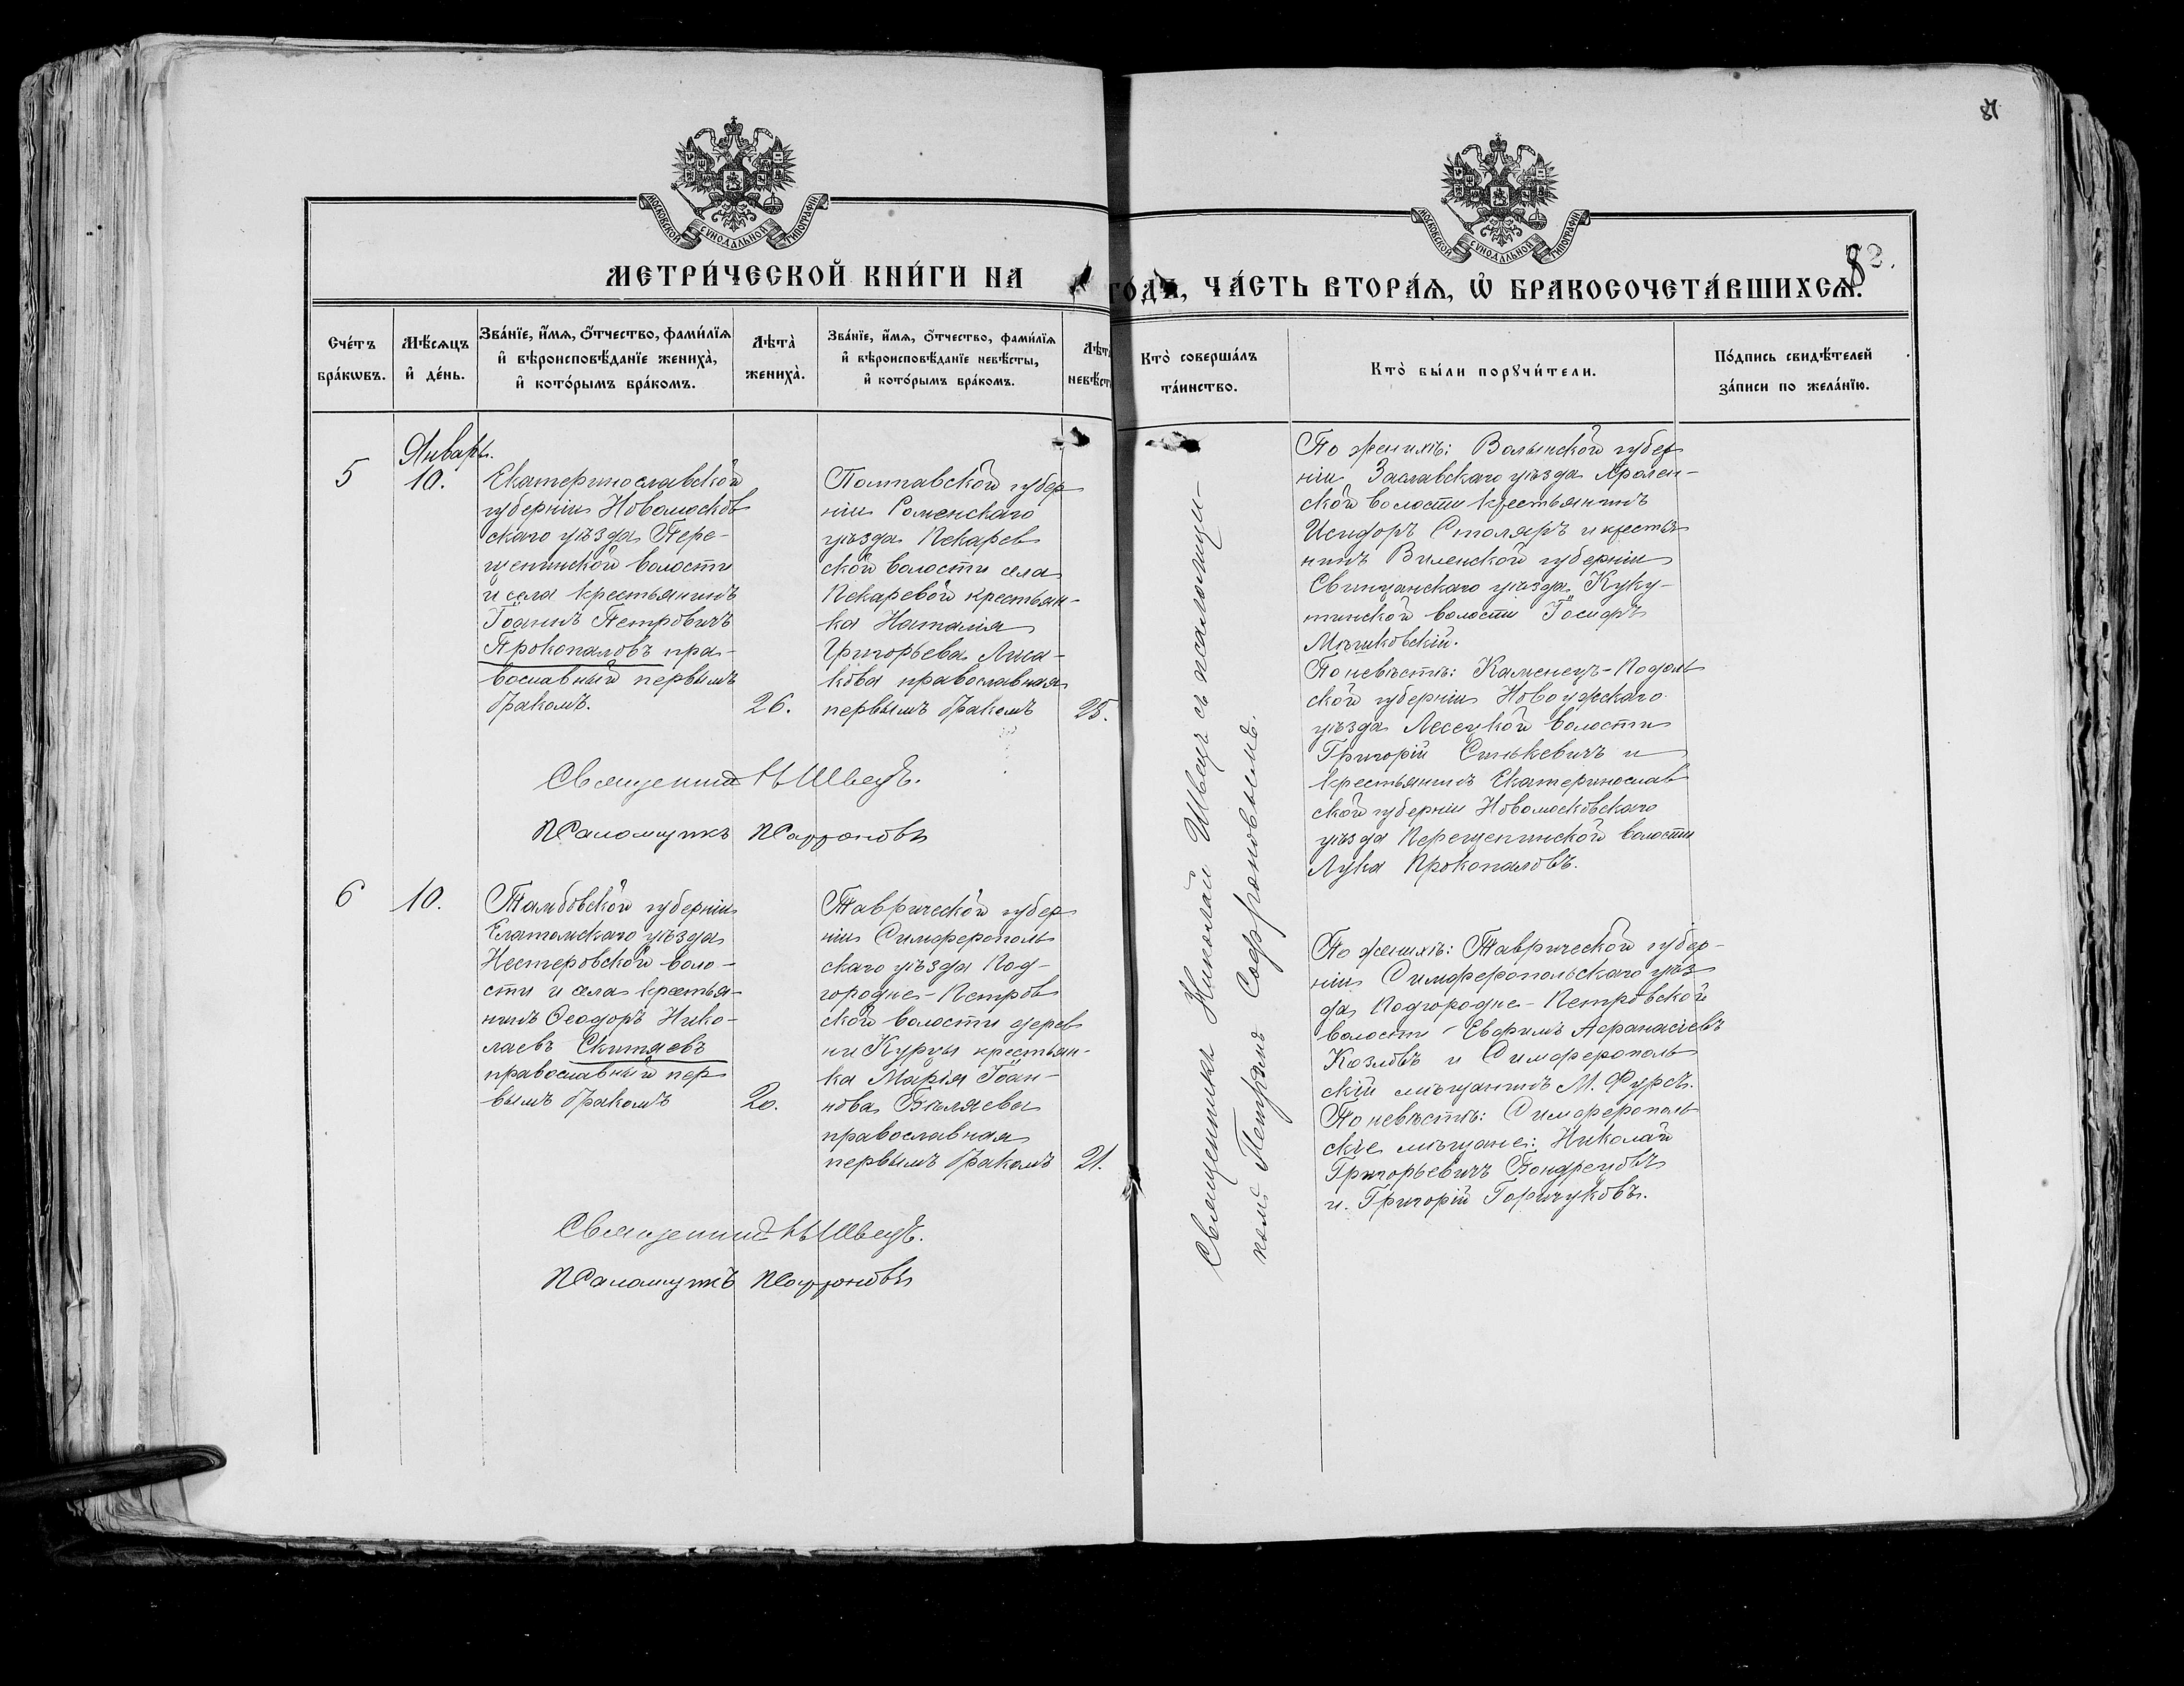 87
83.
МОСКОВСКОЙ СѴНОДАЛЬНОЙ ТИПОГРАФІИ
МОСКОВСКОЙ СѴНОДАЛЬНОЙ ТИПОГРАФІИ
МЕТРИ́ЧЕСКОЙ КНИ́ГИ НА
ГОДЪ, ЧА́СТЬ ВТОРА́Ѧ, Ѽ БРАКОСОЧЕТА́ВШИХСѦ.
Сче́тъ
бра́кѡвъ.
Мѣ́сѧцъ
и҆ де́нь.
Зва́нїе, и҆́мѧ, ѻ҆́тчество, фами́лїѧ
и҆ вѣроисповѣ́данїе жениха̀,
и҆ кото́рымъ бра́комъ.
Лѣта̀
жениха̀.
Зва́нїе, и҆́мѧ, ѻ҆́тчество, фами́лїѧ
и҆ вѣроисповѣ́данїе невѣ́сты,
и҆ кото́рымъ бра́комъ.
Лѣта
невѣст
Кто̀ соверша́лъ
та́инство.
Кто̀ бы́ли порꙋчи́тели.
По́дпись свидѣ́телей
за́писи по жела́нїю.
Январь.
5
10.
Екатеринославской
губерніи Новомосков
скаго уѣзда Пере-
щепинской волости
и села крестьянинъ
Іоаннъ Петровичъ
Прокопаловъ пра-
вославный первымъ
бракомъ.
26.
Полтавской губер
ніи Роменскаго
уѣзда Пекарев
ской волости села
Пекаревой крестьян-
ка Наталія
Григорьева Лиса-
кова православная
первымъ бракомъ
25.
Священник Н Швецъ.
Псаломщикъ ПСофроновъ
Священникъ Николай Швецъ съ псаломщи-
комъ Петромъ Софроновымъ.
По женихѣ: Волынской губер
ніи Заславскаго уѣзда
ской волости крестьянинъ
Исидоръ Столяръ и крестья
нинъ Виленской губерніи
Свинцянскаго уѣзда Куку-
тинской волости Іосифъ
По невѣстѣ: Каменецъ-Подоль
ской губерніи
уѣзда волости
Григорій Синькевичъ и
крестьянинъ Екатеринослав
ской губерніи Новомосковскаго
уѣзда Перещепинской волости
Лука Прокопаловъ.
6
10.
Тамбовской губерніи
Елатомскаго уѣзда
Нестеровской воло-
сти и села крестья-
нинъ Ѳеодоръ Нико-
лаевъ Скитяевъ
православный пер
вымъ бракомъ
20.
Таврической губер
ніи Симферополь
скаго уѣзда Под-
городне-Петров
ской волости дерев
ни Курцы крестьян-
ка Марія Іоан-
нова Бѣляева
православная
первымъ бракомъ
21.
Священник Н Швецъ.
Псаломщикъ ПСофроновъ
По женихѣ: Таврической губер-
ніи Симферопольскаго уѣз
да Подгородне-Петровской
волости Евфимъ Афанасіевъ
Козловъ и Симферополь
скій мѣщанинъ М. Фурсъ.
По невѣстѣ: Симферополь
скіе мѣщане: Николай
Григорьевичъ Бондрецовъ
и Григорій Горичуковъ.